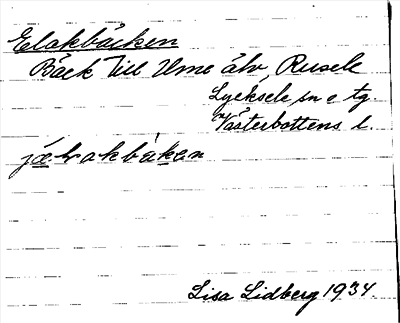 Elakbäcken
Bäck till Ume älv, Rusele
Lycksele sn o tg.
Västerbottens l.
Lisa Lidberg 1934.